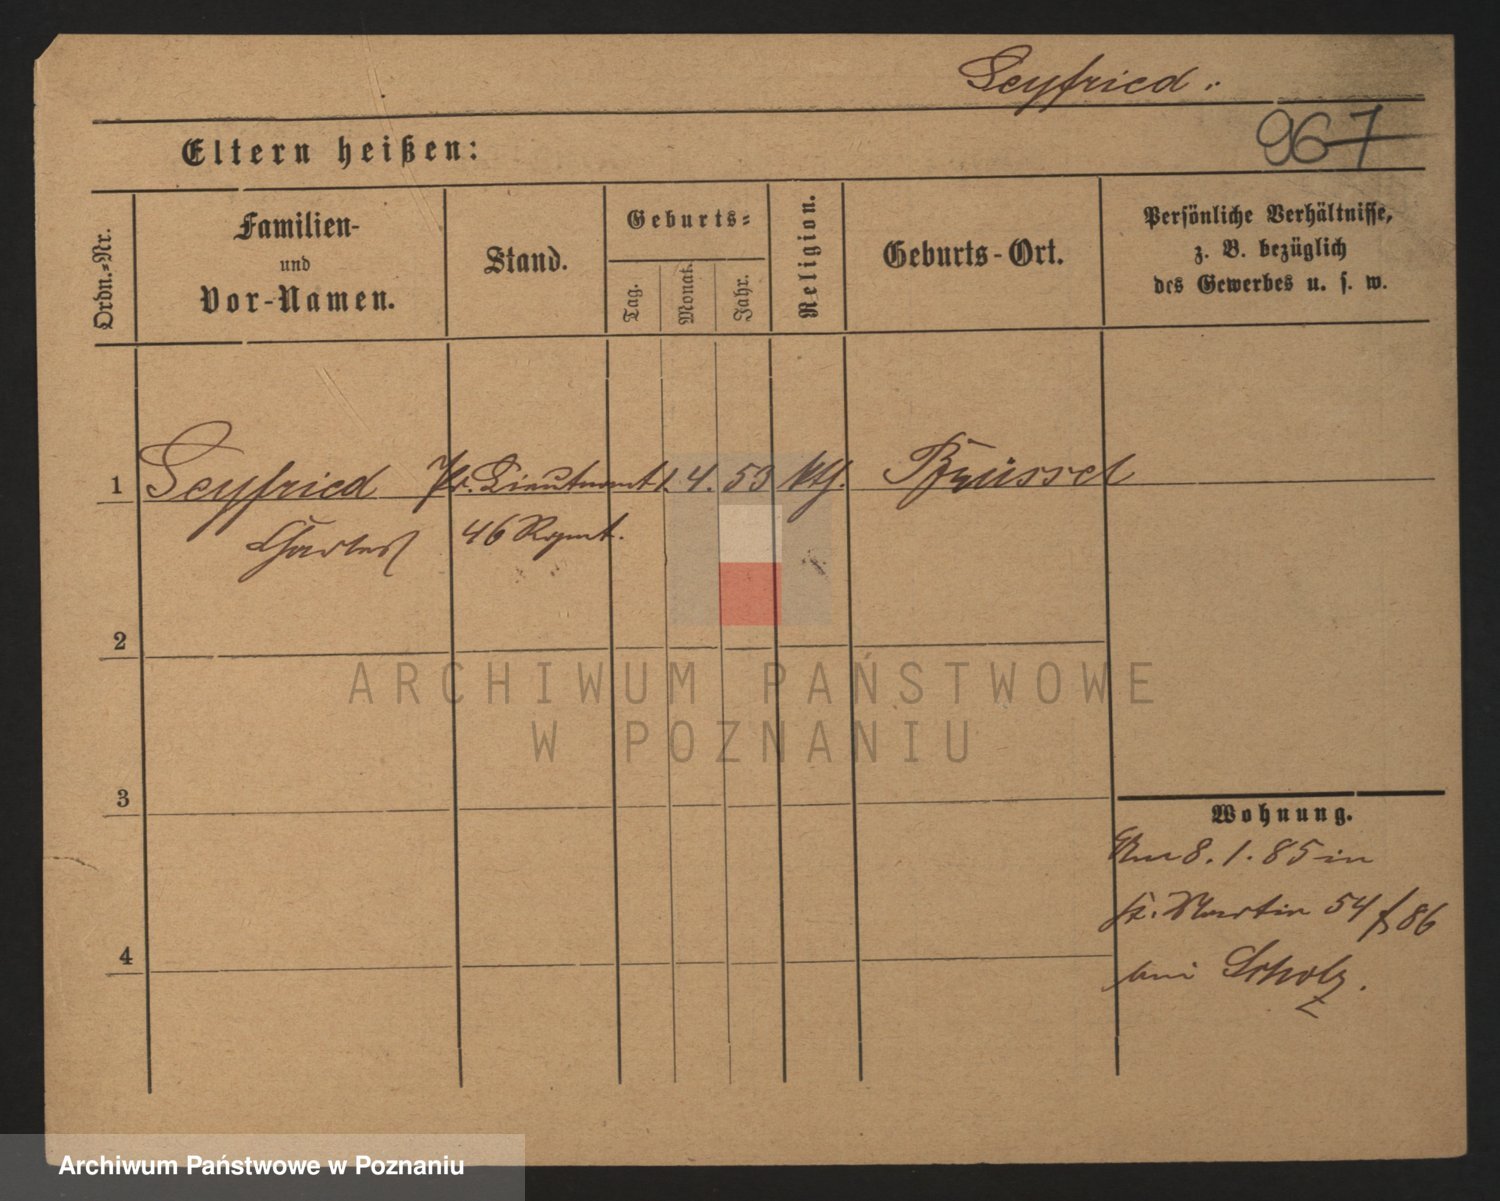 Seyfried.
967
Eltern heißen:
Ordn.-Nr.
Familien-
und
Vor-Namen.
Stand.
Geburts-
Tag.
Monat.
Jahr.
Religion.
Geburts-Ort.
Persönliche Verhältnisse,
z. B. bezüglich
des Gewerbes u. s. w.
1 Seyfried Pr. Lieutenant 1. 4. 53 kth. Brüssel
Charles 46 Regmt.
2
ARCHIWUM PAŃSTWOWE
W POZNANIU
3
Wohnung.
8. 1. 85 in
St. Martin 54 86
4
bei Scholz.
Archiwum Państwowe w Poznaniu